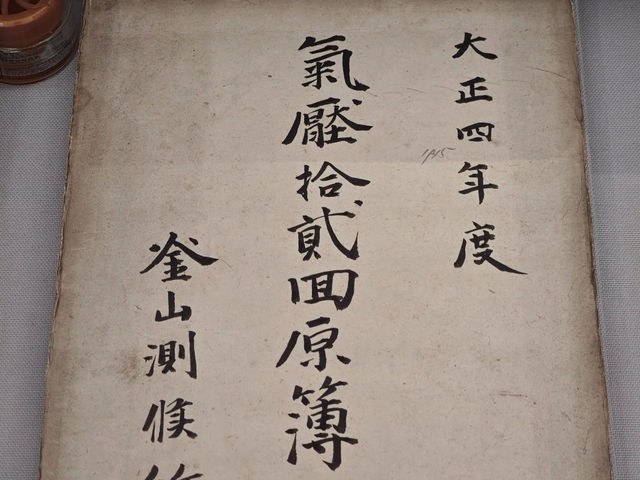 大正四年度
1915
氣壓拾貳回原簿
釜山測候